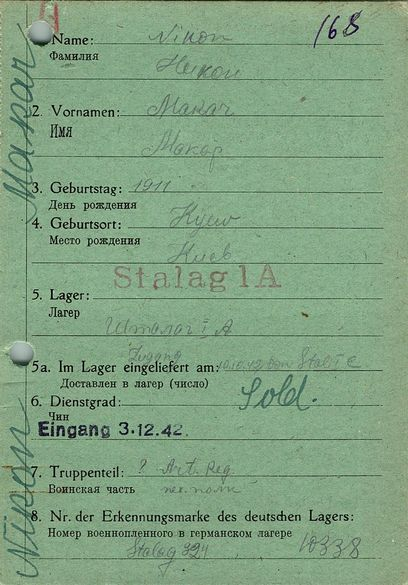 168
1. Name: Nikon
Фамилия
Никон
2. Vornamen: Makar
Имя
Макар
3. Geburtstag: 1911
День рождения
4. Geburtsort: Kyew
Место рождения
Киев
Stalag 1A
5. Lager:
Лагер
Шталаг I A
Zugang
5a. Im Lager eingeliefert am: 10.10.42 von
Доставлен в лагер (число)
6. Dienstgrad: Sold.
Чин
Eingang 3.12.42.
7. Truppenteil: ? Art. Reg.
Воинская часть
8. Nr. der Erkennungsmarke des deutschen Lagers:
Номер военнопленного в германском лагере
Stalag 10338
Makar
Nikon